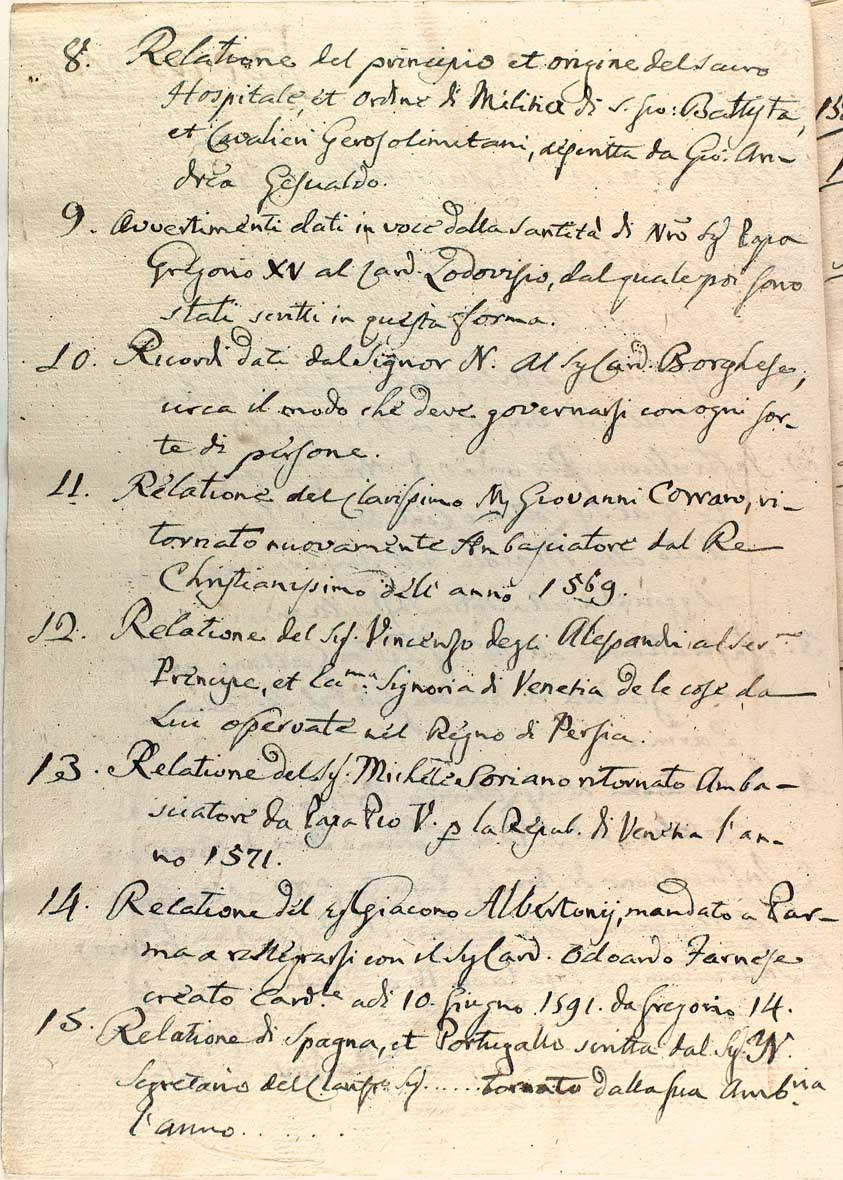 8. Relatione del principio et origine del sacro
Hospitale, et ordine di Militia di S. Gio: Battista,
et Cavalieri Gerosolimitani, descritta da Gio: An-
drea Gesualdo.
9. Avvertimenti dati in voce dalla santità di Nrõ Sig Papa
Gregorio XV al Card. Lodovisio, dal quale poi sono
stati scritti in questa forma.
10. Ricordi dati dal Signor N. al Sig Card. Borghese,
circa il modo che deve governarsi con ogni sor-
te di persone.
11. Relatione del Clarissimo M. Giovanni Corraro, ri-
tornato nuovamente Ambasciatore dal Re
Christianissimo dell' anno 1569.
12. Relatione del Sig. Vincenzo degli Alesandri al Ser.mo
Principe, et Ecc.ma Signoria di Venetia de le cose da
Lui osservate nel Regno di Persia.
13. Relatione del Sig. Michele Soriano ritornato Amba-
sciatore da Papa Pio V. p la Repub. di Venetia l'an-
no 1571.
14. Relatione del Giacono Albertonij, mandato a Par-
ma a rallegrarsi con il Sig Card. Odoardo Farnese
creato Card.le adi 10. Giugno 1591. da Gregorio 14.
15. Relatione di Spagna, et Portugallo scritta dal Sig. N.
Segretario del Clariss. Sig ...... tornato dalla sua Amb.ria
l'anno ......